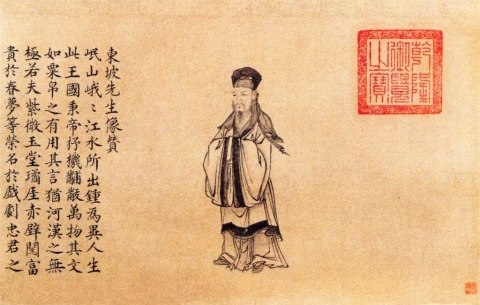 乾隆
御覽
之寶
東坡先生像贊
岷山峨〻江水所出鍾為異人生
此王國秉帝杼機黼黻萬物其文
如粟帛之有用其言猶河漢之無
極若夫紫微玉堂瓊厓赤壁閱富
貴於春夢等榮名於戲劇忠君之